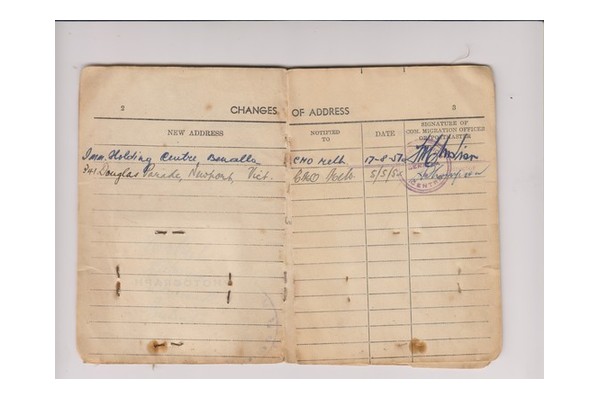 2 CHANGES OF ADDRESS 3
NEW ADDRESS NOTIFIED TO DATE SIGNATURE OF COM. MIGRATION OFFICER OR POSTMASTER
Imm. Holding Centre, Benalla CMO Melb 17-8-51
341 Douglas Parade, Newport, Vict. CMO Melb 5/5/52
CENTRE